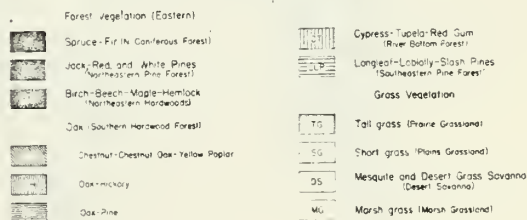 Forest Vegetation (Eastern)
Spruce-Fir (N. Coniferous Forest)
Jack, Red, and White Pines
(Northeastern Pine Forest)
Birch-Beech-Maple-Hemlock
(Northeastern Hardwoods)
Oak (Southern Hardwood Forest)
Chestnut-Chestnut Oak-Yellow Poplar
Oak-Hickory
Oak-Pine
Cypress-Tupelo-Red Gum
(River Bottom Forest)
LP
Longleaf-Loblolly-Slash Pines
(Southeastern Pine Forest)
Grass Vegetation
TG
Tall grass (Prairie Grassland)
SG
Short grass (Plains Grassland)
DS
Mesquite and Desert Grass Savanna
(Desert Savanna)
MG
Marsh grass (Marsh Grassland)